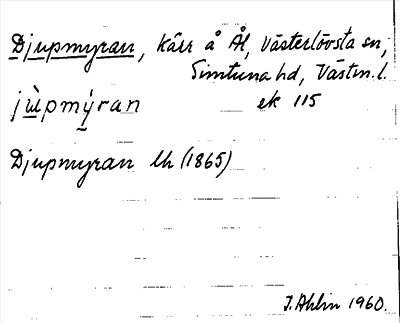 Djupmyran, Kärr å Ål, Västerlövsta sn,
Simtuna hd, Västm. l.
jùpmýran ek 115
Djupmyran lh (1865)
J. Ahlin 1960.